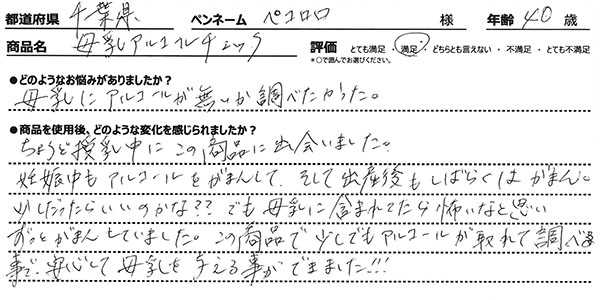 都道府県 千葉県 ペンネーム ペコロロ 様 年齢 40 歳
商品名 母乳アルコールチェック 評価 とても満足 ・ 満足 ・ どちらとも言えない ・ 不満足 ・ とても不満足
*○で囲んでお選びください。
●どのようなお悩みがありましたか？
母乳にアルコールが無いか調べたかった。
●商品を使用後、どのような変化を感じられましたか？
ちょうど授乳中にこの商品に出会いました。
妊娠中もアルコールをがまんして、そして出産後もしばらくはがまん。
少しだったらいいのかな？？でも母乳に含まれてたら怖いなと思い
ずっとがまんしていました。この商品で少しでもアルコールが取れて調べる
事で、安心して母乳を与える事ができました!!!